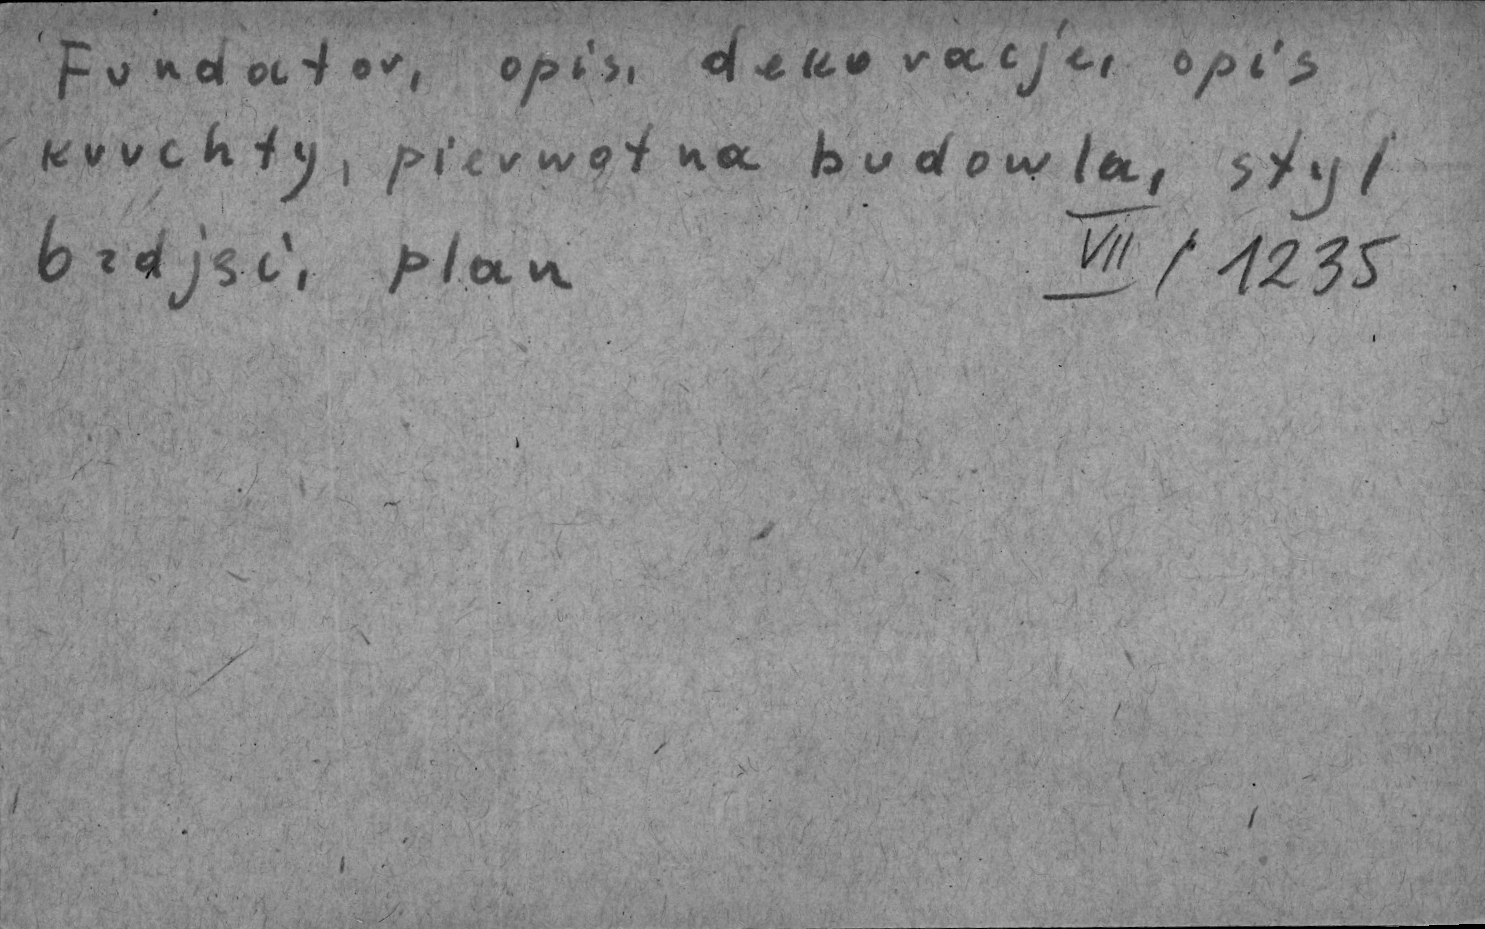 Fundator, opis, dekoracje, opis
kruchty, pierwotna budowla, styl
bzdjsi, plan VII / 1235